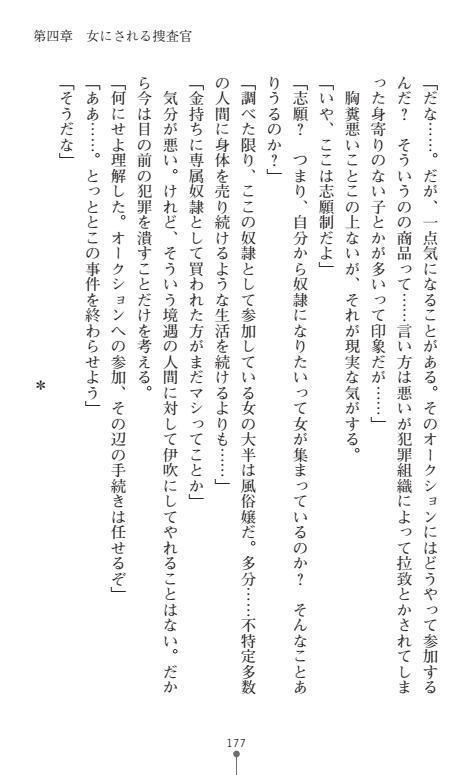 第四章　女にされる捜査官
「だな……。だが、一点気になることがある。そのオークションにはどうやって参加する
んだ？　そういうのの商品って……言い方は悪いが犯罪組織によって拉致とかされてしま
った身寄りのない子とかが多いって印象だが……」
　胸糞悪いことこの上ないが、それが現実な気がする。
「いや、ここは志願制だよ」
「志願？　つまり、自分から奴隷になりたいって女が集まっているのか？　そんなことあ
りうるのか？」
「調べた限り、ここの奴隷として参加している女の大半は風俗嬢だ。多分……不特定多数
の人間に身体を売り続けるような生活を続けるよりも……」
「金持ちに専属奴隷として買われた方がまだマシってことか」
　気分が悪い。けれど、そういう境遇の人間に対して伊吹にしてやれることはない。だか
ら今は目の前の犯罪を潰すことだけを考える。
「何にせよ理解した。オークションへの参加、その辺の手続きは任せるぞ」
「ああ……。とっととこの事件を終わらせよう」
「そうだな」
＊
177